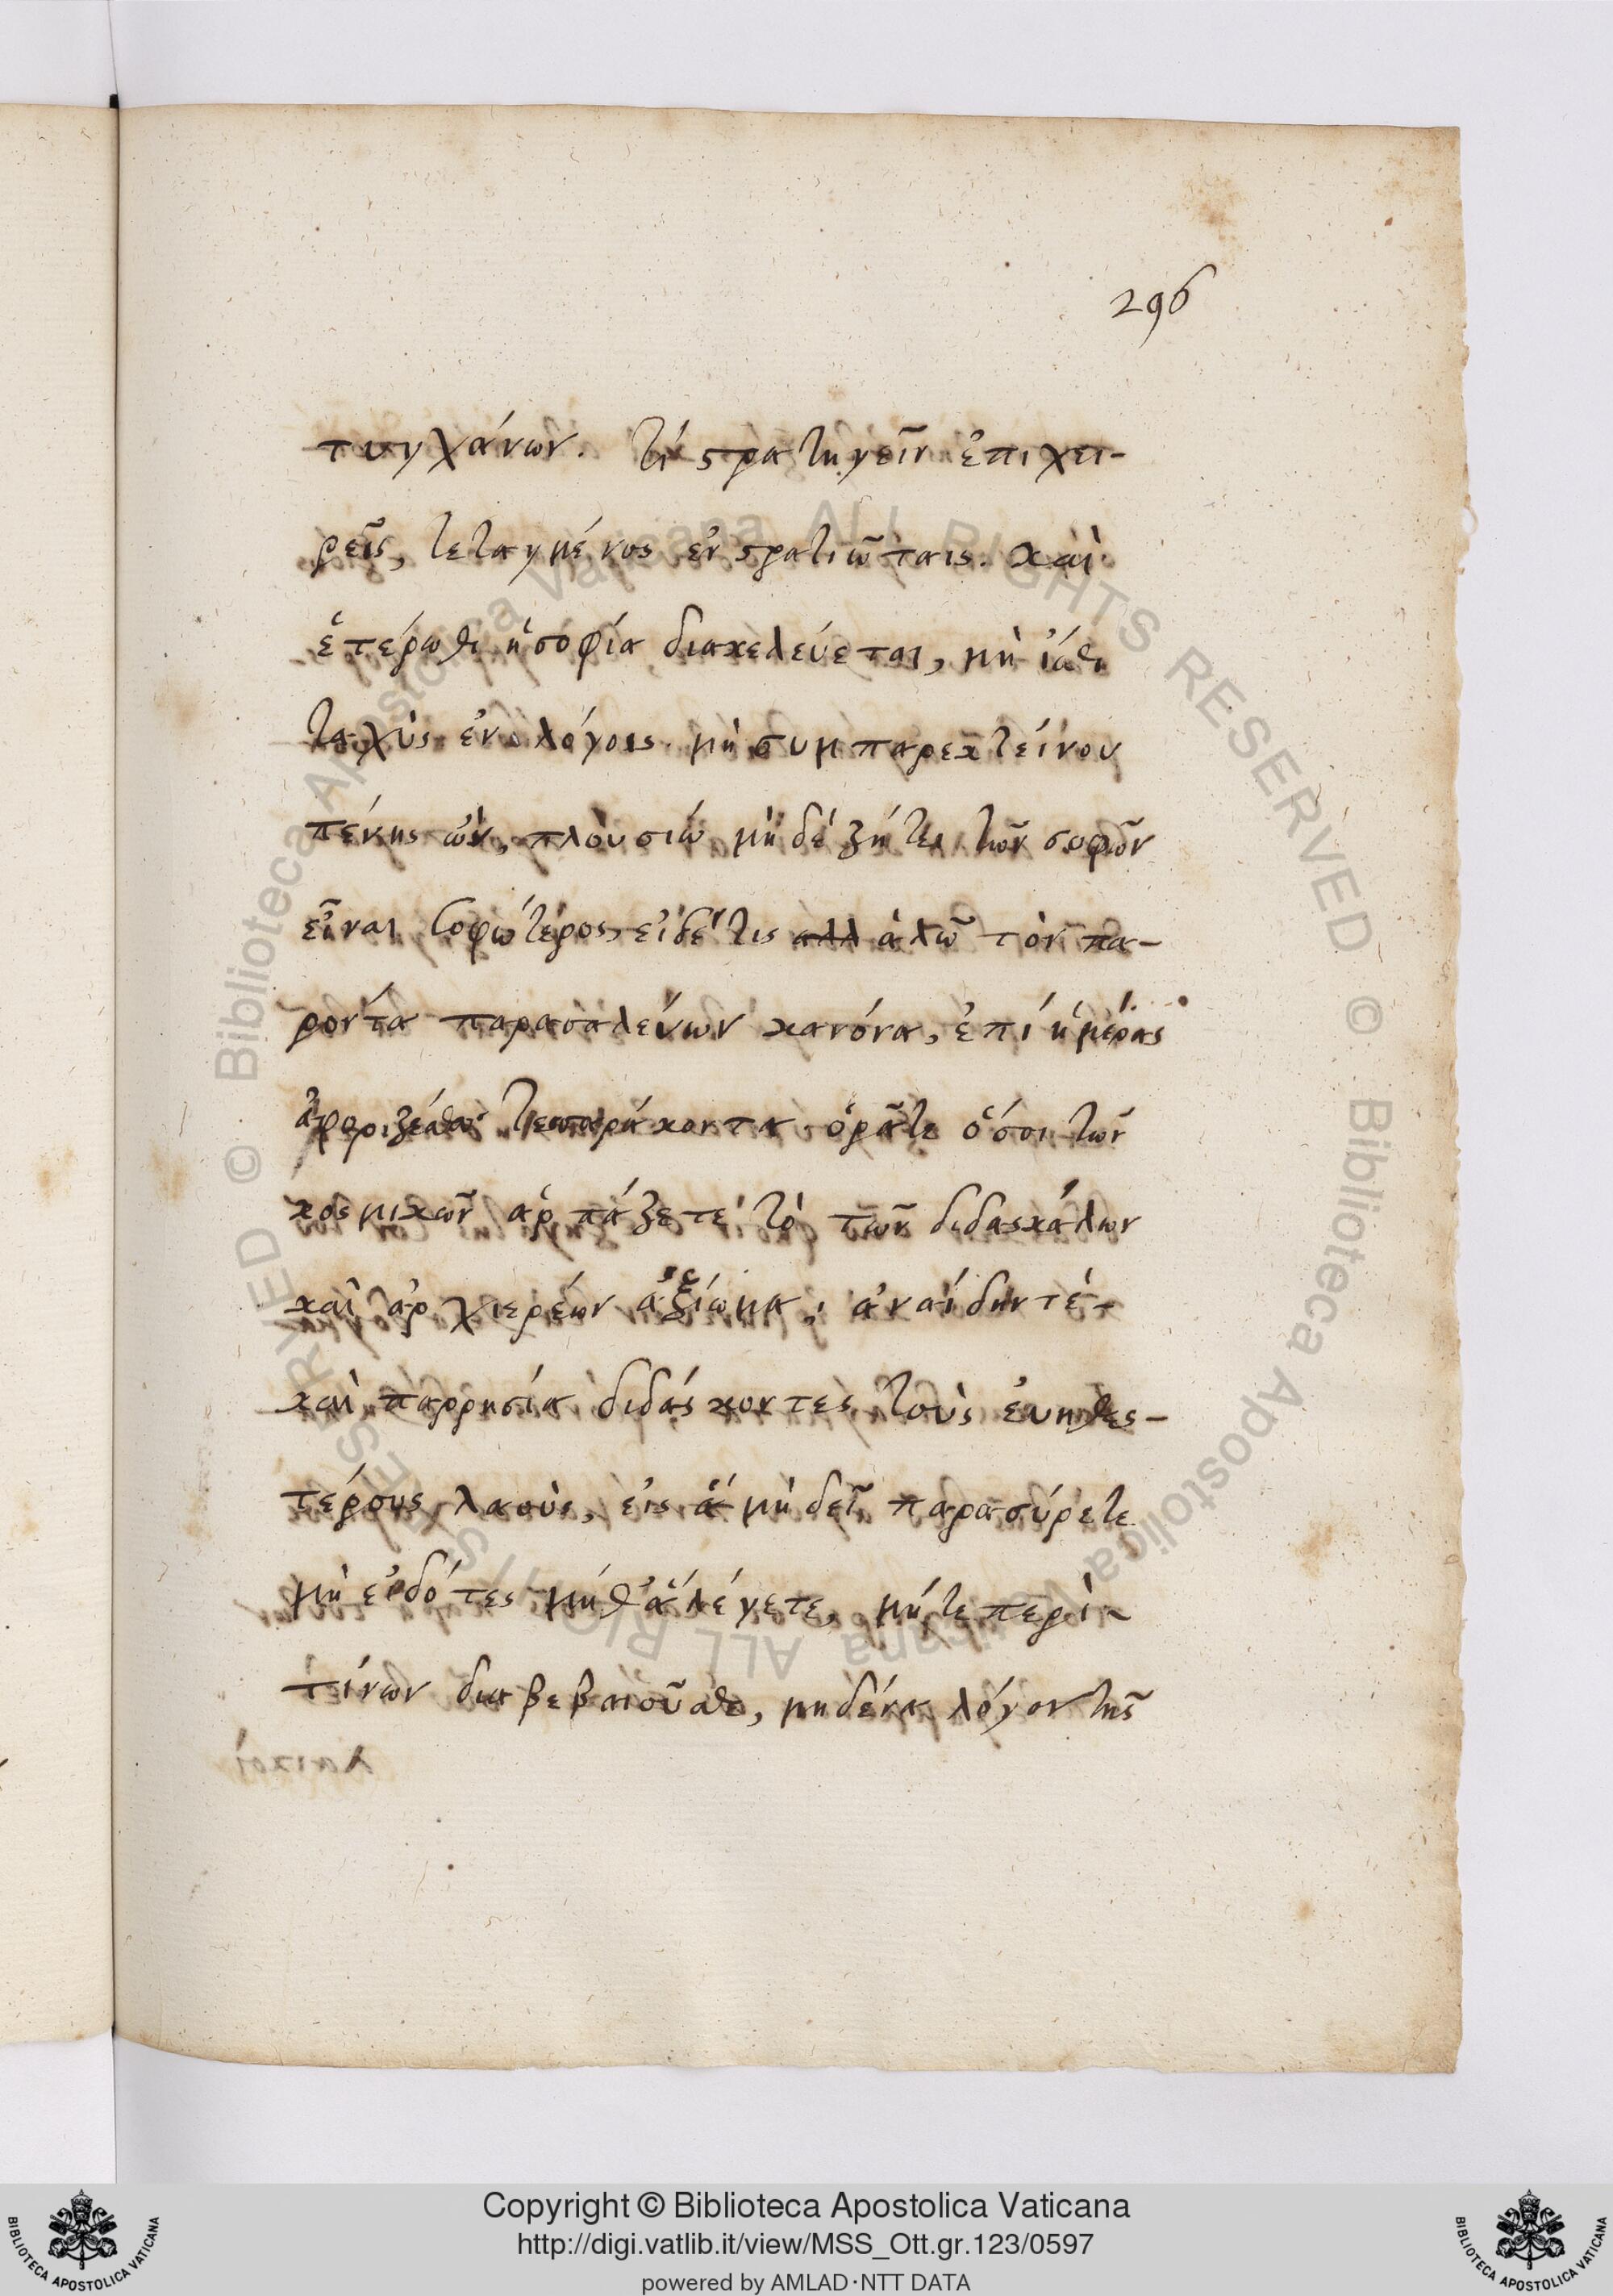 296
τυγχάνων. τί στρατηγεῖν ἐπιχει-
ρεῖς, τεταγμένος ἐν στρατιώταις. καὶ
ἑτέρωθι ἡ σοφία διακελεύεται, μὴ ἴσθι
ταχὺς ἐν λόγοις. μὴ συμπαρεκτείνου
πένης ὢν, πλουσίω μὴ δέ ζήτει τῶν σοφῶν
εἶναι σοφώτερος, εἰ δέ τις αλλ ἁλῶ τὸν πα-
ρόντα παρασαλεύων κανόνα, ἐπί ἡμέρας
ἀφοριζέσθω τεσσαράκοντα ὁρᾶτε ὅσοι τῶν
κοσμικῶν ἁρπάζετε τό τῶν διδασκάλων
καὶ ἀρχιερέων ἀξίωμα, ἀναίδην τέ
καὶ παρρησία διδάσκοντες τοὺς ἐυηθεσ-
τέρους λαοὺς, εἰς ἅ μὴ δεῖ παρασύρετε
μὴ εἰδότες μήθ' ἅ λέγετε, μήτε περὶ
τίνων διαβεβαιοῦσθε, μηδένα λόγον τῆς
Copyright © Biblioteca Apostolica Vaticana
http://digi.vatlib.it/view/MSS_Ott.gr.123/0597
powered by AMLAD·NTT DATA
BIBLIOTECA APOSTOLICA VATICANA
BIBLIOTECA APOSTOLICA VATICANA
© Biblioteca Apostolica Vaticana ALL RIGHTS RESERVED
© Biblioteca Apostolica Vaticana ALL RIGHTS RESERVED